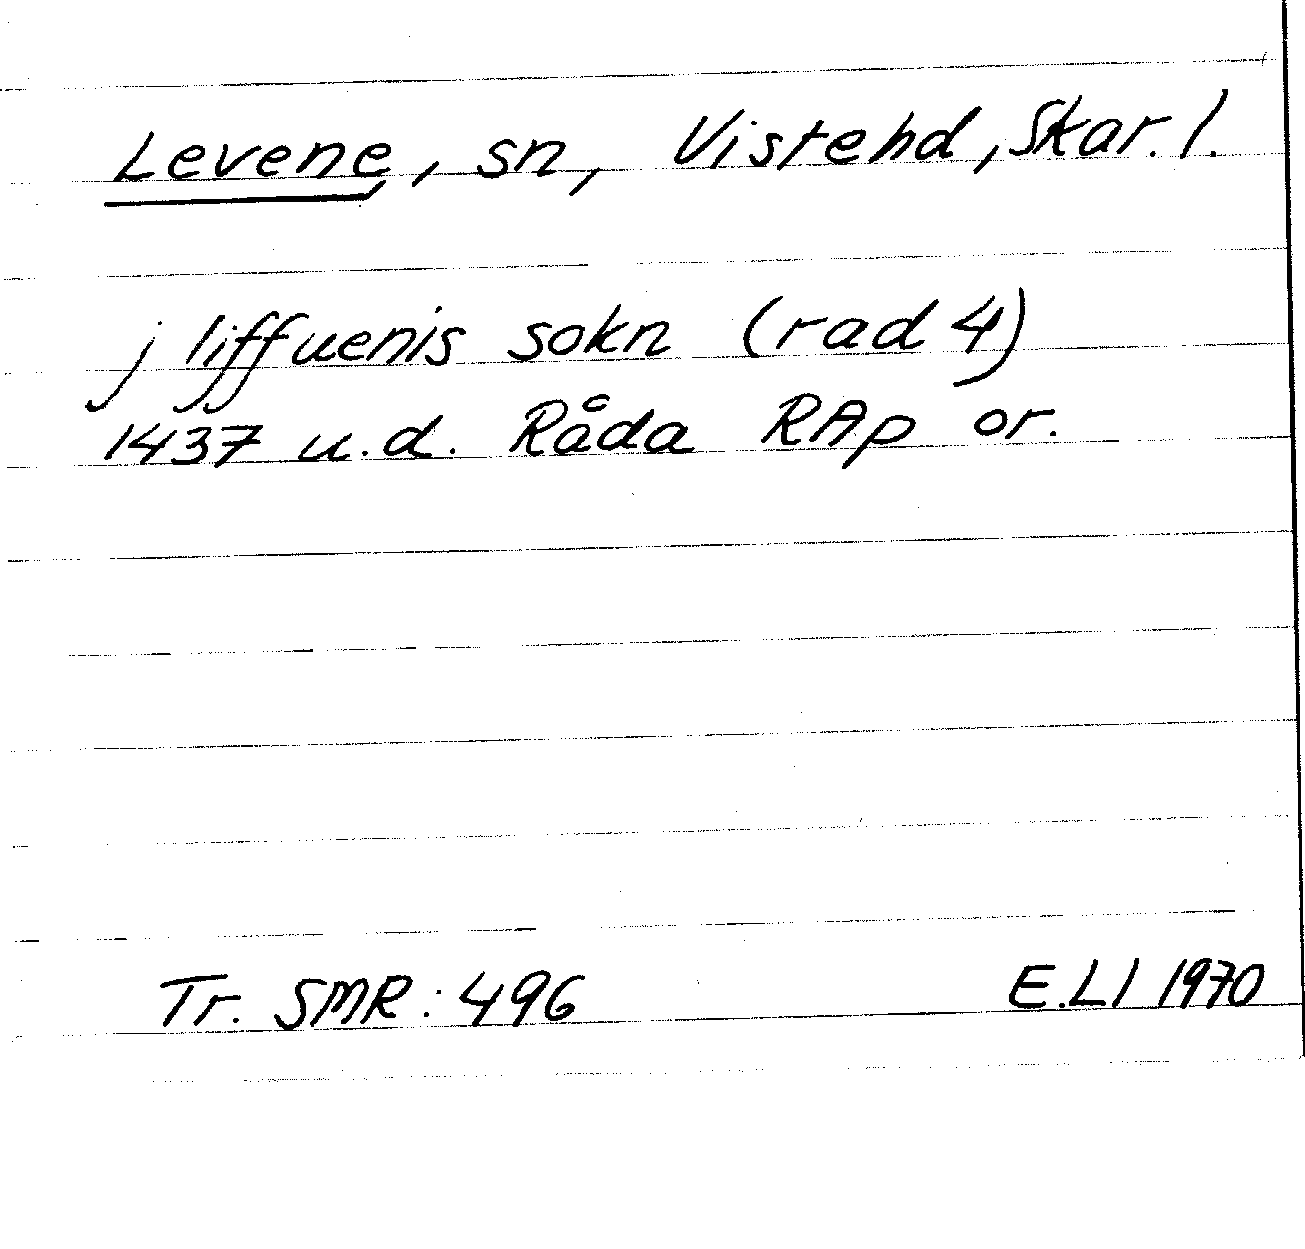 Levene, sn, Vistehd, Skar. l.
j liffuenis sokn (rad 4)
1437 u.d. Råda RAp or.
Tr. SMR: 496 E.Ll 1970